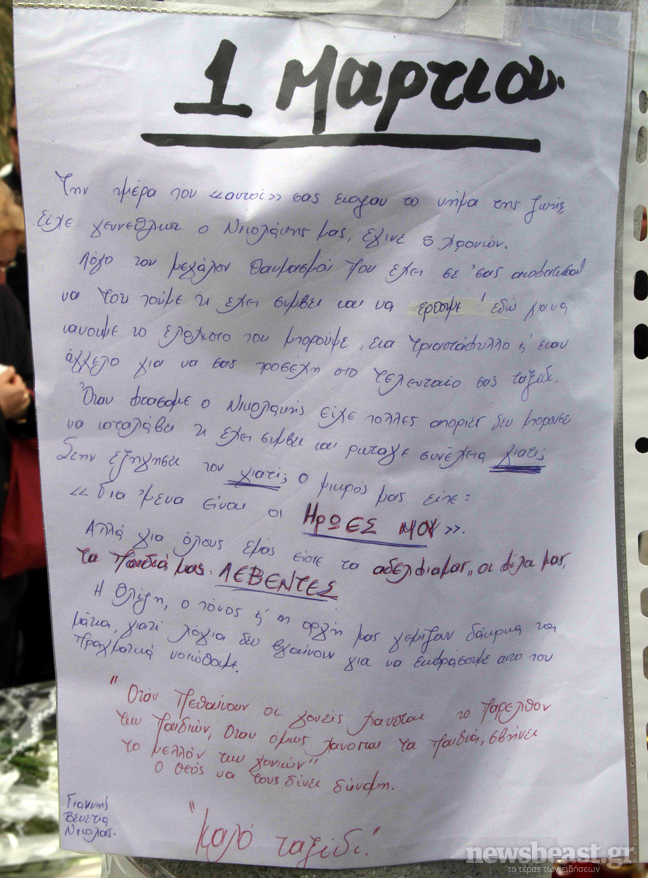 1 Μαρτιου.
Την ημέρα που «αυτοί» σας έκοψαν το νήμα της ζωής,
είχε γενέθλια ο Νικολάκης μας, έγινε 6 χρονών.
Λόγο του μεγάλου θαυμασμού που έχει σε 'σας αποφασίσαμε
να του πούμε τι έχει συμβει και να έρθουμε εδώ για να
κανουμε το ελάχιστο που μπορούμε, ένα τριαντάφυλλο ή έναν
άγγελο για να σας προσέχη στο τελευταίο σας ταξίδι.
Όταν φτάσαμε ο Νικολάκης είχε πολλες αποριες δεν μπορουσε
να καταλάβει τι έχει συμβει και ρωτάγε συνέχεια γιατί;
Στην εξήγηση του γιατί; ο μικρός μας είπε:
«δια 'μενα είναι οι ΗΡΩΕΣ ΜΟΥ».
Αλλά για όλους εμας είστε τα αδελφια μας, οι φίλοι μας,
τα παιδιά μας. ΛΕΒΕΝΤΕΣ
Η θλίψη, ο πόνος ή η οργή μας γεμίζουν δάκρυα τα
μάτια, γιατί λόγια δεν βγαίνουν για να εκφράσουμε αυτο που
πραγματικά νοιώθουμε.
"Όταν πεθαίνουν οι γονείς χάνεται το παρελθόν
των παιδιών, όταν ομως χάνονται τα παιδιά, σβήνει
το μέλλον των γονιών"
Ο θεός να τους δίνει δύναμη.
Γιάννης
Βενετία
Νικόλας.
"Καλό ταξίδι."
newsbeast.gr
το τέρας των ειδήσεων